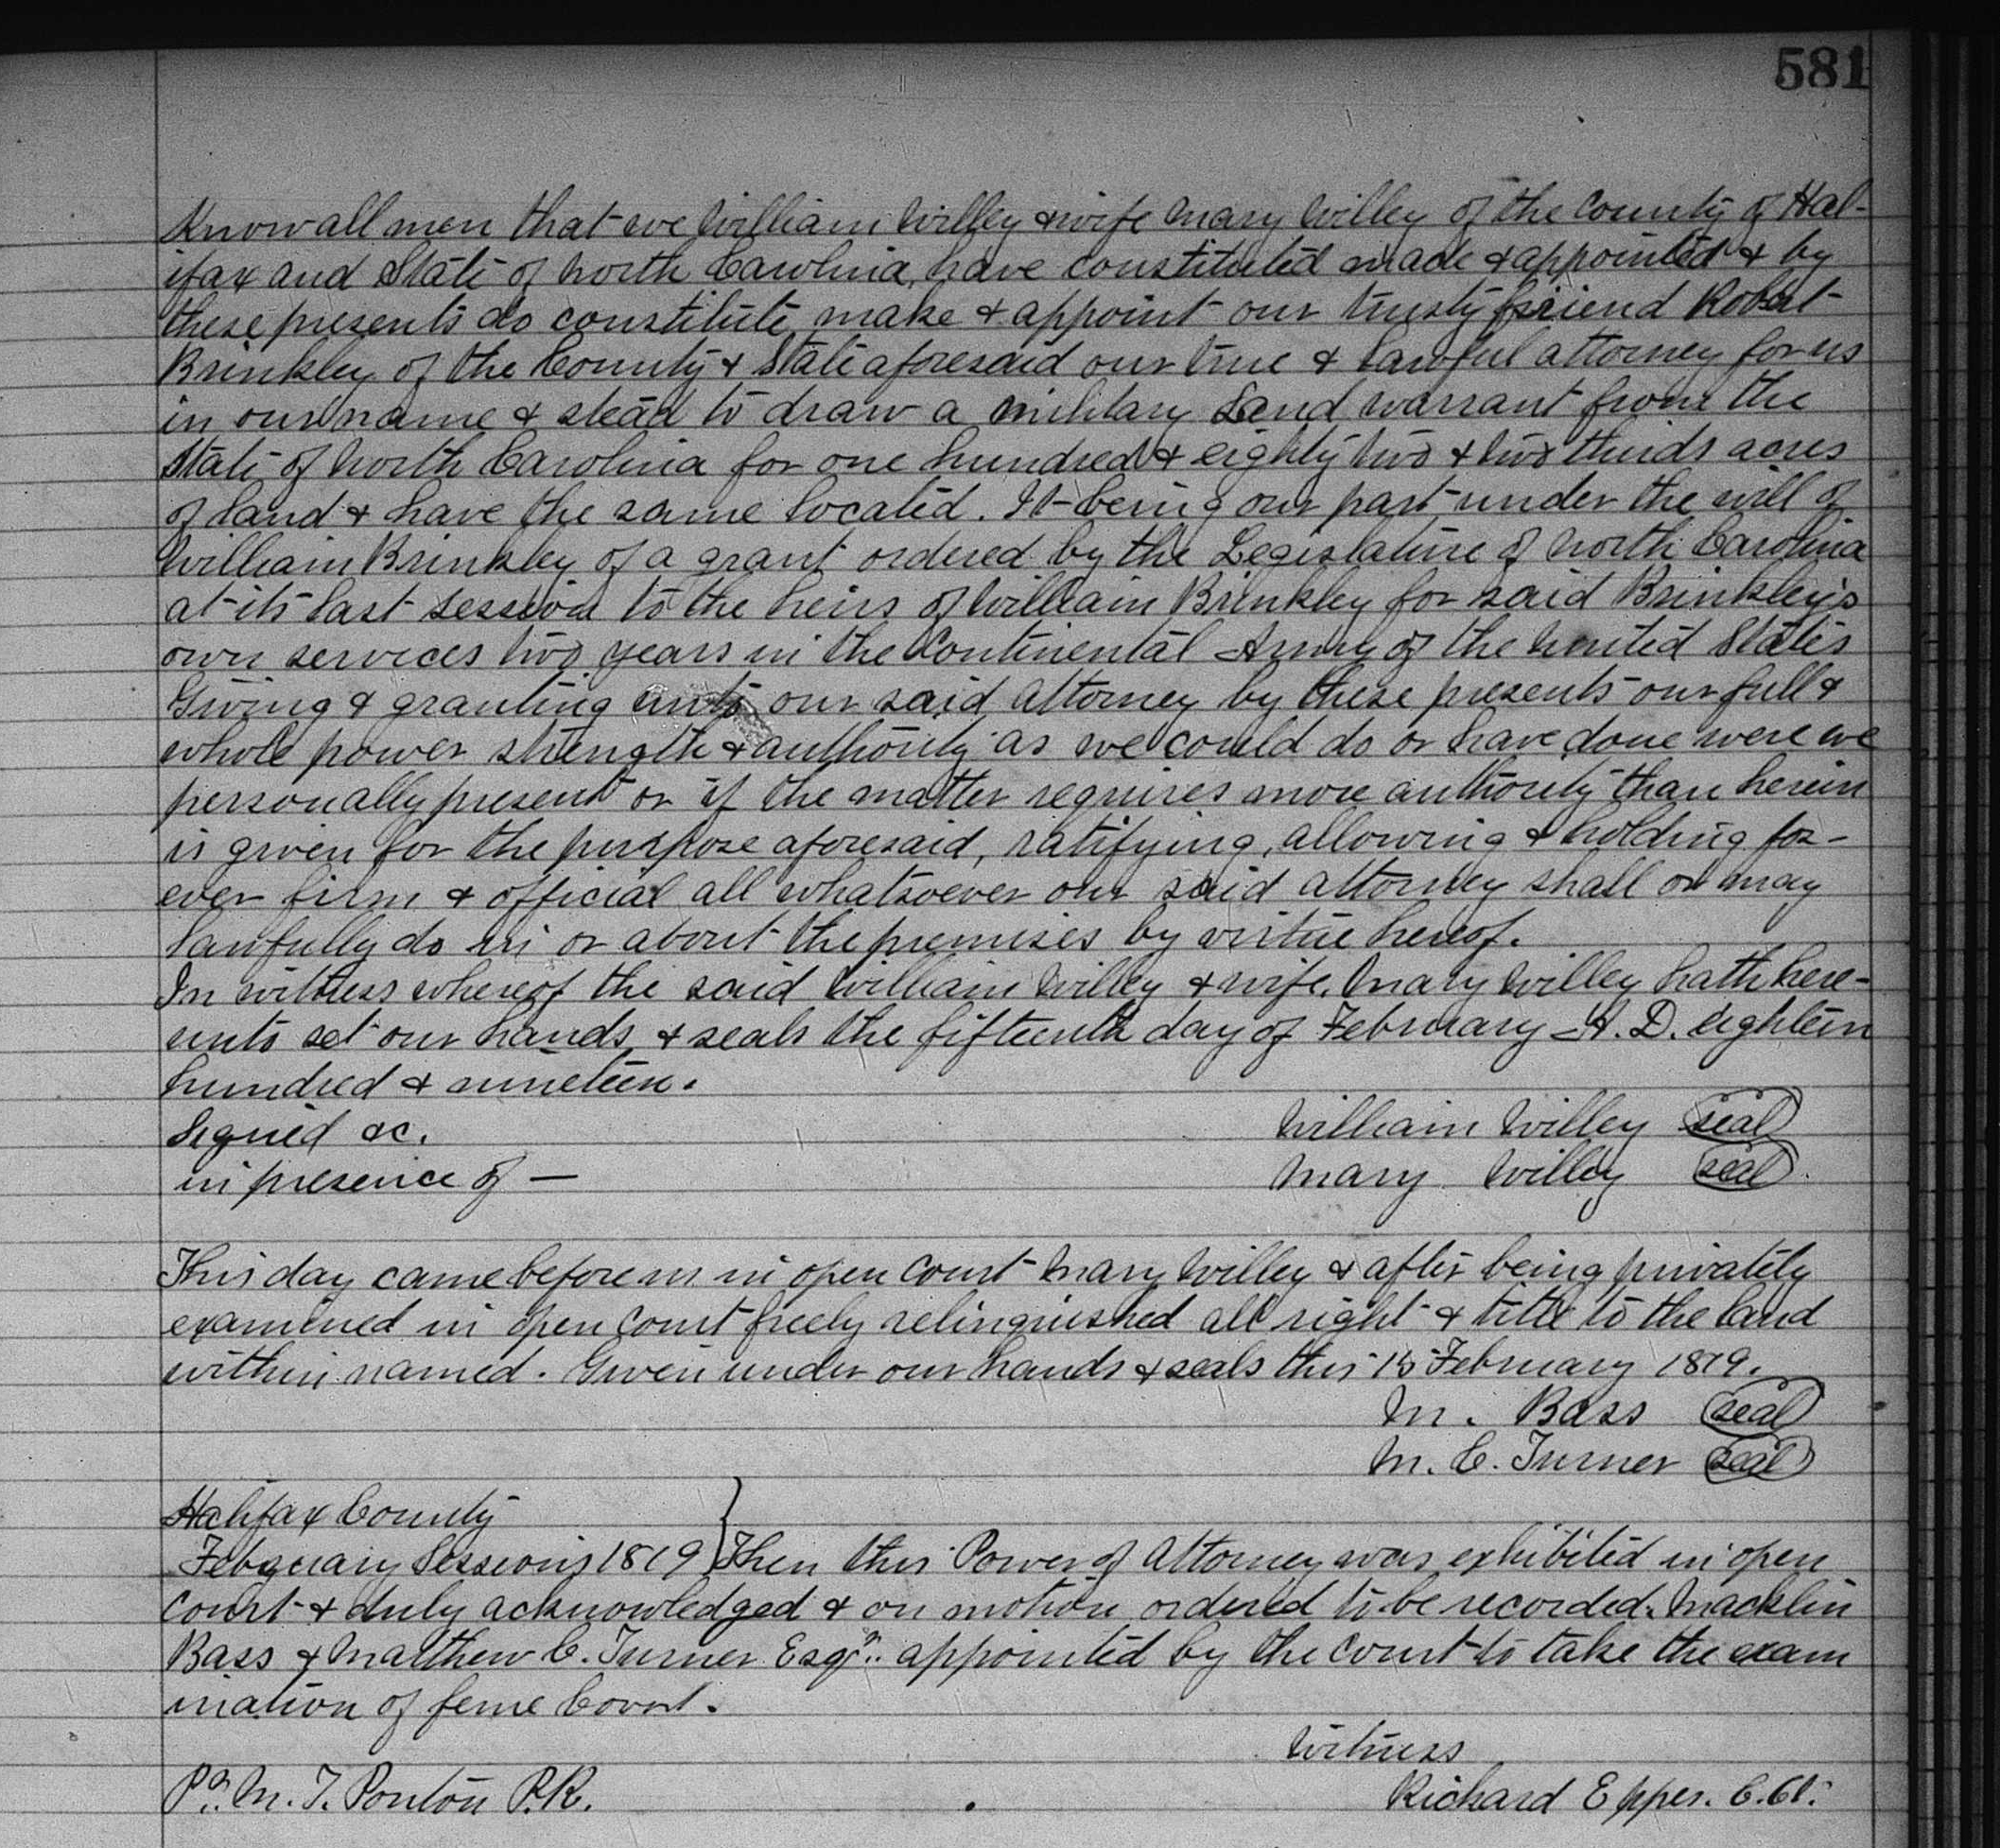 581
Know all men that we William Willey & wife Mary Willey of the County of Hal-
ifax and State of North Carolina, have constituted made & appointed & by
these presents do constitute, make & appoint our trusty friend Robert
Brinkley of the County & State aforesaid our true & lawful attorney for us
in our name & stead to draw a military Land warrant from the
State of North Carolina for one hundred & eighty two & two thirds acres
of land & have the same located. It being our part under the will of
William Brinkley of a grant ordered by the Legislature of North Carolina
at its last session to the heirs of William Brinkley for said Brinkley's
own services two years in the Continental Army of the United States
Giving & granting unto our said attorney by these presents our full &
whole power strength & authority as we could do or have done were we
personally present or if the matter requires more authority than herein
is given for the purpose aforesaid, ratifying, allowing & holding for-
ever firm & official all whatsoever our said attorney shall or may
lawfully do in or about the premises by virtue hereof.
In witness whereof the said William Willey & wife Mary Willey hath here-
unto set our hands & seals the fifteenth day of February A. D. eighteen
hundred & nineteen.
Signed &c.
in presence of —
William Willey seal
Mary Willey seal
This day came before us in open court Mary Willey & after being privately
examined in open court freely relinquished all right & title to the land
within named. Given under our hands & seals this 15 February 1819.
M. Bass seal
M. C. Turner seal
Halifax County
February Sessions 1819 } Then this Power of Attorney was exhibited in open
court & duly acknowledged & on motion ordered to be recorded. Macklin
Bass & Matthew C. Turner Esqr. appointed by the court to take the exam
ination of feme Covert.
Witness
Pr. M. T. Ponton P.R.
Richard Eppes. C.Cl.